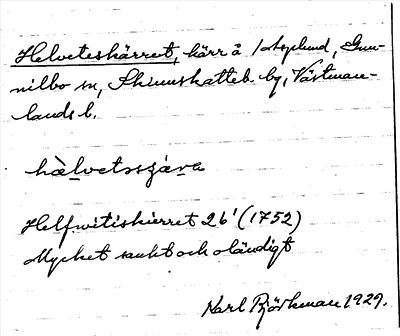 Helveteskärret, kärr å Asplund, Gun-
nilbo sn, Skinnskatteb. bg, Västman-
lands l.
Helfwitiskierret 26' (1752)
Mycket sankt och oländigt
Karl Björkman 1929.